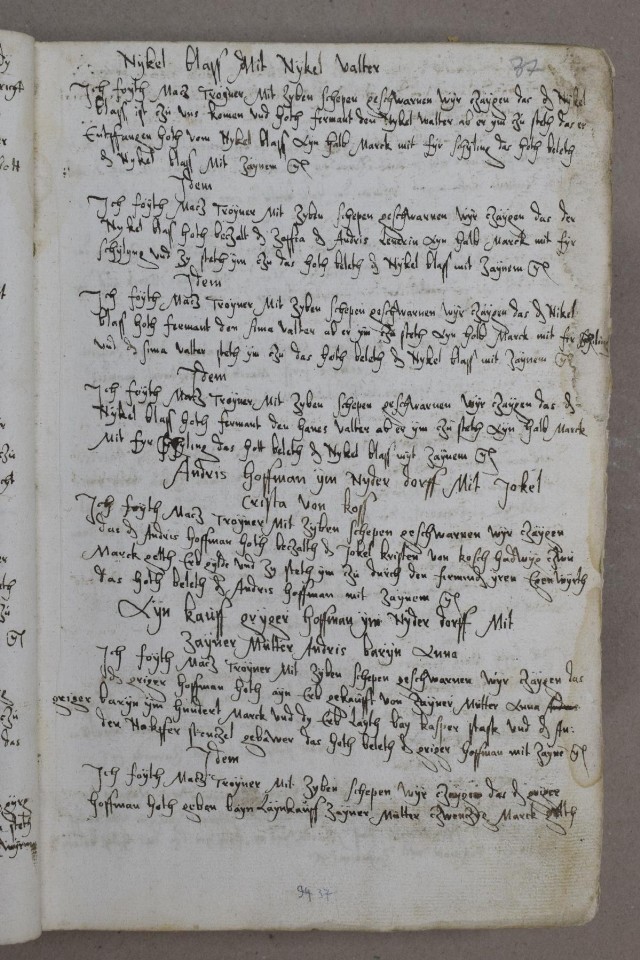 Nykel blass Mit Nykel Valter
37
Ich foÿth Matz Troÿner Mit Zyben schepen geschwarnen wÿr zaÿgen das d Nÿkel
blass ist zu uns komen und hoth fermant den Nykel Valter ab er ym zu steth das er
Entpffangen hoth vom Nykel blass Ayn halb Marck mit fyr schyling das hoth beleth
d Nykel blass Mit Zaynem
Idem
Ich foÿth Matz Troÿner Mit Zyben schepen geschwarnen wÿr zaÿgen das der
Nykel blass hoth bezalt d Andris Ayn halb Marck mit fyr
schylyng und Zy steth ym zu das hoth beleth d Nykel blass mit Zaÿnem
Idem
Ich foÿth Matz Troÿner Mit Zyben schepen geschwarnen wÿr zaÿgen das d Nikel
blass hoth fermant den sima Valter ab er ym zu steth Ayn halb Marck mit fyr
und d sima Valter steth ym zu das hoth beleth d Nykel blass mit Zaynem
Idem
Ich foÿth Matz Troÿner Mit Zyben schepen geschwarnen wÿr zaÿgen das d
Nykel blass hoth fermant den hanes Valter ab er ym zu steth Ayn halb Marck
Mit fyr das hott beleth d Nykel blass myt Zaÿnem
Andris hoffman ym Nyder dorff Mit Jokel
Crista von koss
Ich foÿth Matz Troÿner Mit Zyben schepen geschwarnen wÿr zaÿgen
das d Andris hoffman hoth bezalth d Jokel kristen von kosch
Marck und Zy steth ym zu durch den yren
das hoth beleth d Andris hoffman mit Zaynem
Ayn kauff gryger hoffman ym Nyder dorff Mit
Zayner Mutter Andris baryn Anna
Ich foÿth Matz Troÿner Mit Zyben schepen geschwarnen wyr zaÿgen das
d griger hoffman hoth ayn Erb gekaufft von Zayner Mutter Anna
griger baryn ym hundert Marck und dy Erb layth bay kasper stask und
der stenzel gebawer das hoth beleth d griger hoffman mit Zayne
Idem
Ich foÿth Matz Troÿner Mit Zyben schepen wyr zaygen das d griger
hoffman hoth geben Zayner Mutter zwenzyg Marck
94 37